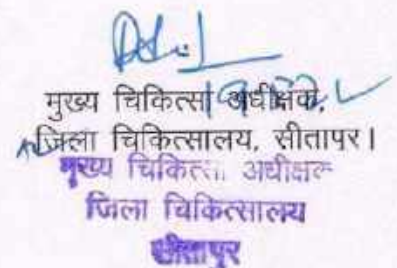 मुख्य चिकित्सा अधीक्षक,
जिला चिकित्सालय, सीतापर।
मुख्य चिकित्सा अधीक्षक
जिला चिकित्सालय
सीतापुर